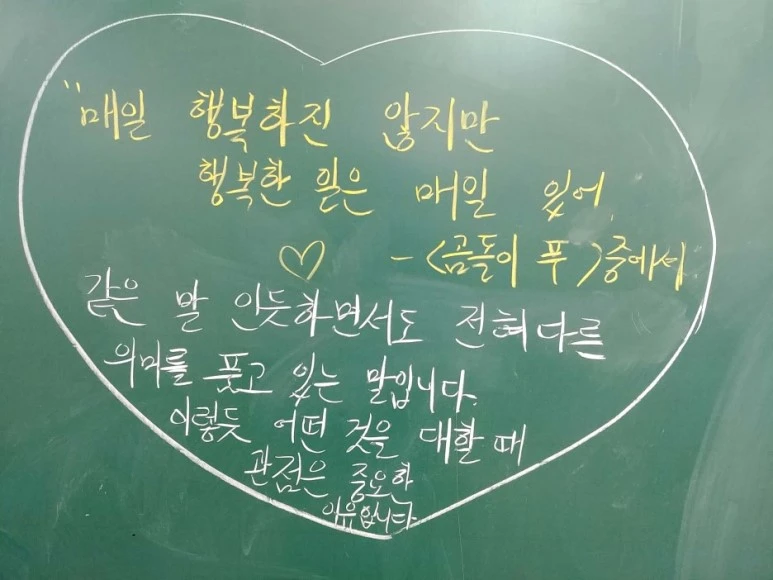 "매일 행복하진 않지만
행복한 일은 매일 있어.
♡ - <곰돌이 푸> 중에서
같은 말 인듯하면서도 전혀다른
의미를 품고 있는 말입니다.
이렇듯 어떤 것을 대할 때
관점은 중요한
이유입니다